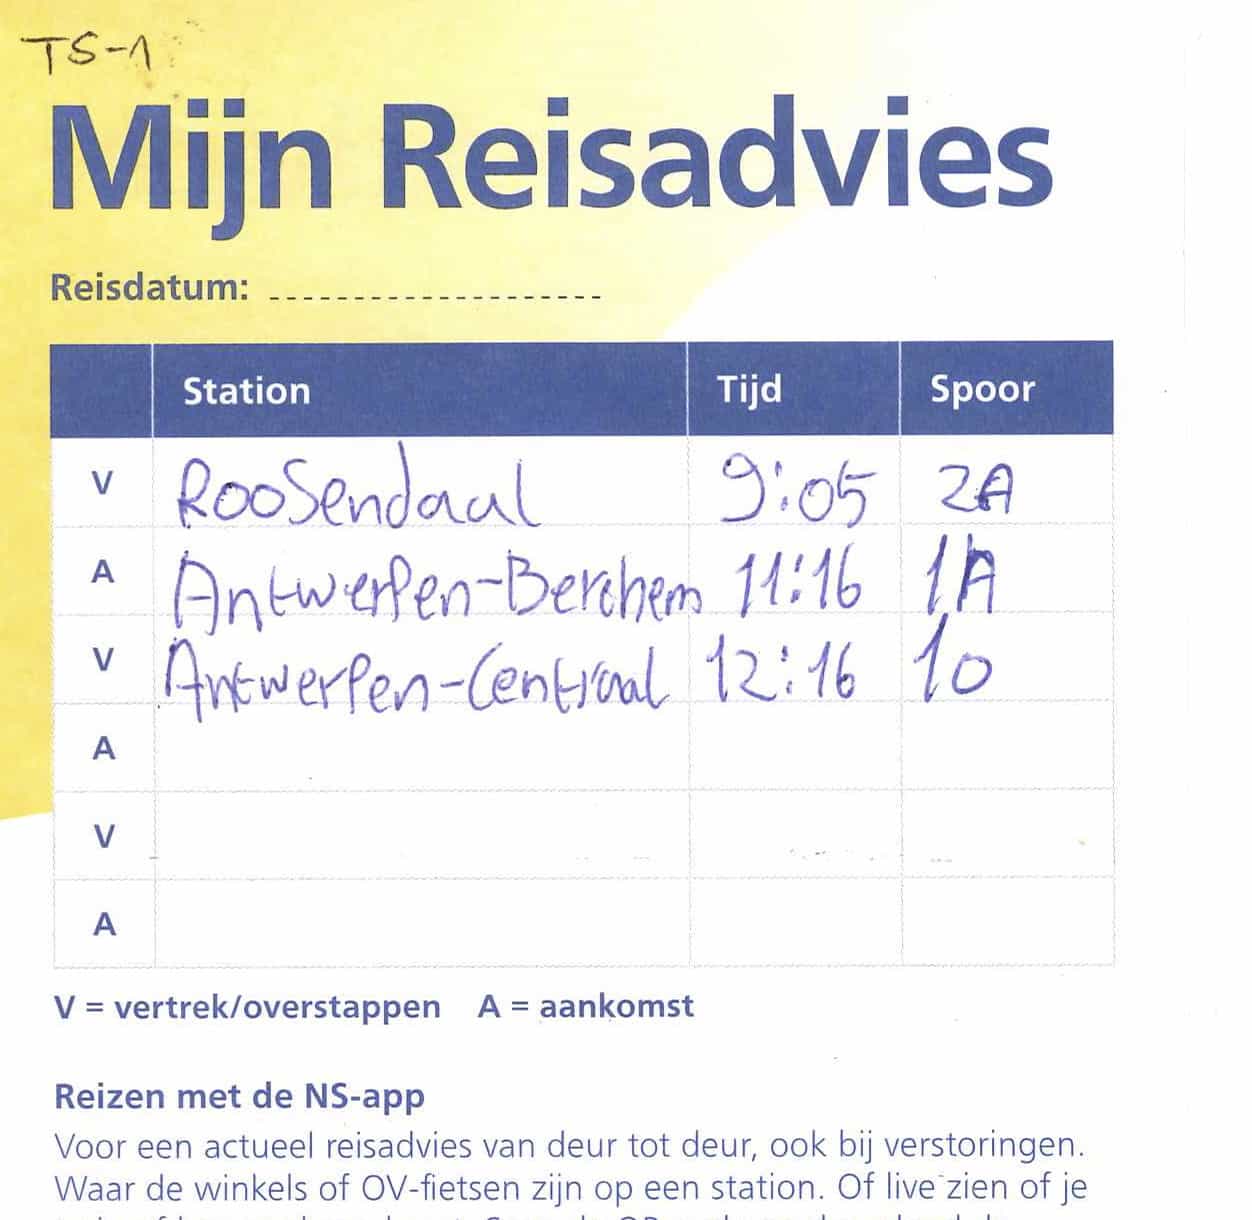 TS-1
Mijn Reisadvies
Reisdatum:
Station Tijd Spoor
V Roosendaal 9:05 2A
A Antwerpen-Berchem 11:16 1A
V Antwerpen-Centraal 12:16 10
A
V
A
V = vertrek/overstappen A = aankomst
Reizen met de NS-app
Voor een actueel reisadvies van deur tot deur, ook bij verstoringen.
Waar de winkels of OV-fietsen zijn op een station. Of live zien of je